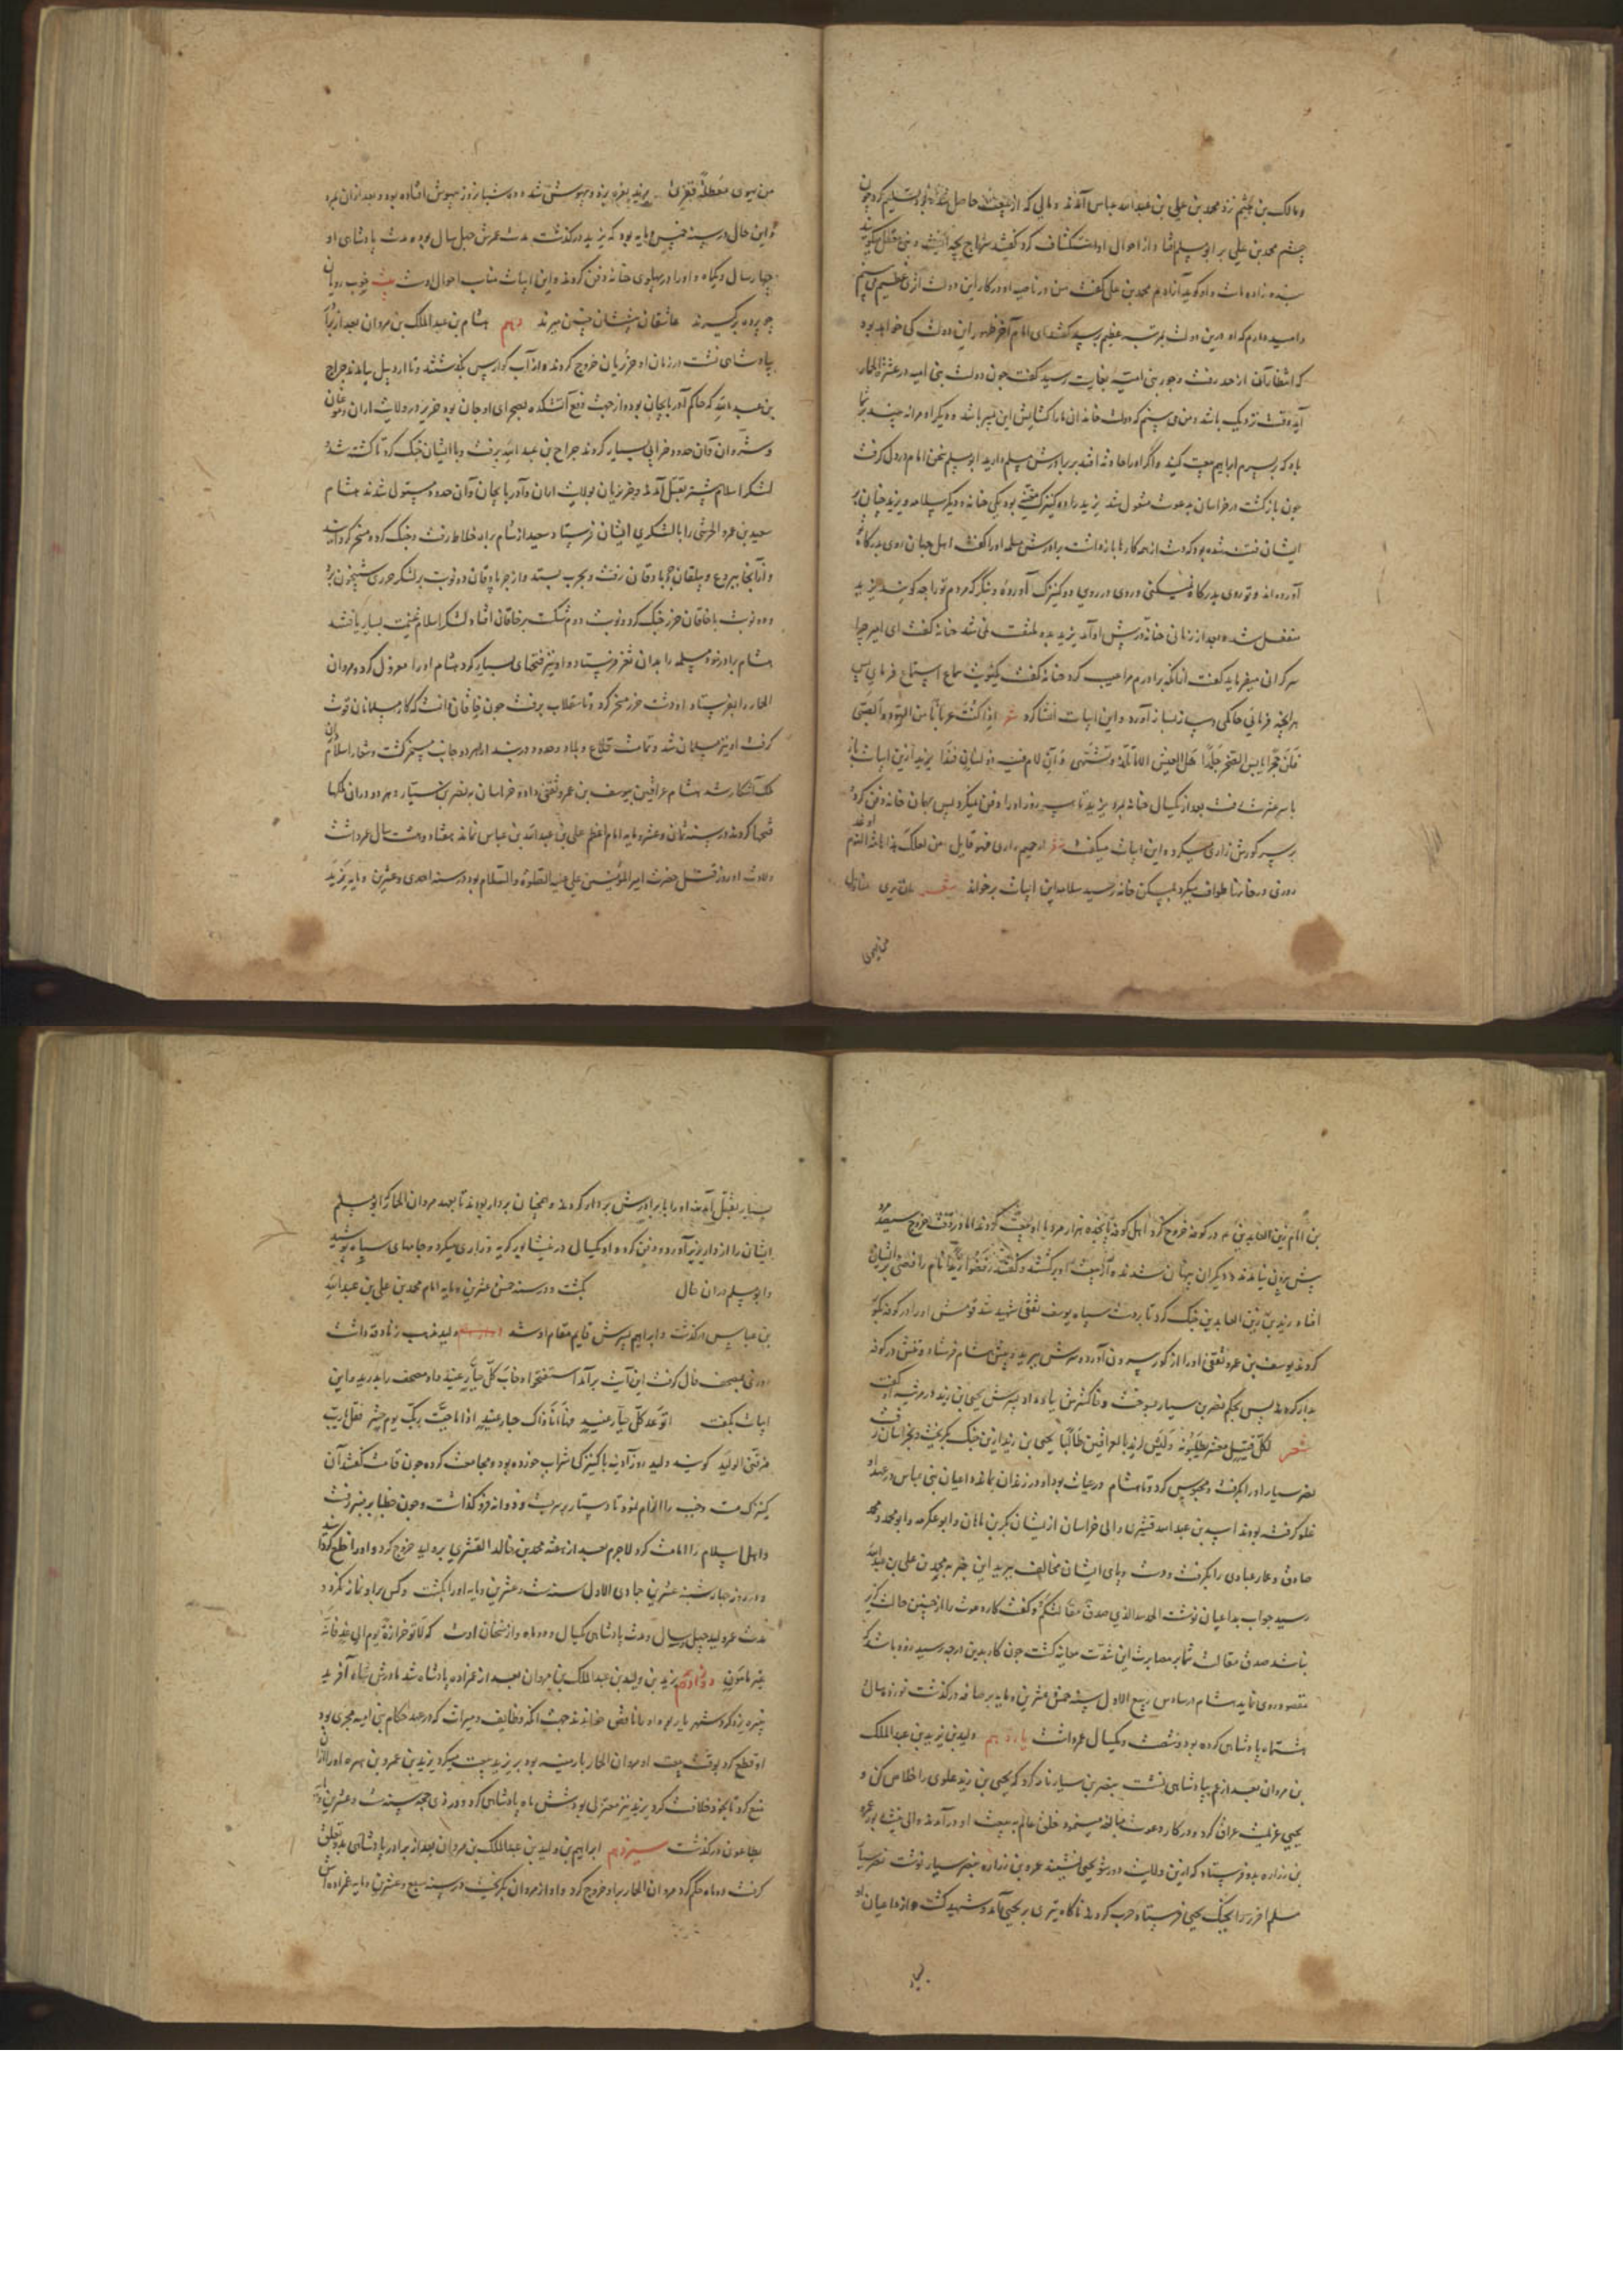 و مالک بن هیثم نزد محمد بن علی بن عبدالله عباس آمدند و مالی که از بیعت حاصل شده بود تسلیم کرد چون
چشم محمد بن علی بر ابومسلم افتاد از احوال او استکشاف کرد گفتند سراج بچه است و بنی معقل میگویند
بنده زاده ماست و او گوید آزادم محمد بن علی گفت من در ناصیه او در کار این دولت اثری عظیم می بینم
و امید دارم که او درین دولت بمرتبه عظیم رسد گفتند ای امام آخر ظهور این دولت کی خواهد بود
که انتظار آن از حد رفت و جور بنی امیه بغایت رسید گفت چون دولت بنی امیه در عشر الحمار
آید وقت نزدیک باشد و من می بینم که دولت خاندان ما را گشایش این پسر باشد و دیگر مرا نه بینید بر شما
باد که بر پسرم ابراهیم بیعت کنید و اگر او را حادثه افتد بر برادرش مسلم دارید ابومسلم سخن امام در دل گرفت
چون بازگشت در خراسان بدعوت مشغول شد یزید را دو کنیزک مغنیه بود یکی حبابه و دیگر سلامه و یزید چنان بر
ایشان فتنه شده بود که دست از همه کارها بازداشت برادرش مسلمه او را گفت اهل جهان روی بدرگاه تو
آورده اند و تو روی بدرگاه نمیکنی و روی در روی دو کنیزک آورده بنگر که مردم ترا چه گویند یزید
منفعل شد و بعد از زمانی حبابه پیش او آمد یزید بدو ملتفت نمی شد حبابه گفت ای امیر چرا
سر گرانی میفرماید گفت از آنکه برادرم مرا عیب کرد حبابه گفت یک نوبت سماع استماع فرمای پس
هر آنچه فرمائی حاکمی و ساز بساز آورد و این ابیات انشا کرد شعر اذا کنت عزهاتا من اللهو والصبی
فکن حجرا من یابس الصخر جلمدا هل العیش الا ما تلذ و تشتهی و ان لام فیه ذو الشنان و فندا یزید ازین ابیات باز
با سر عشرت رفت بعد از یکسال حبابه بمرد یزید تا سه روز او را دفن نمیکرد پس بهمان خانه دفن کرد و
بر سر گورش زاری میکرد و این ابیات میگفت شعر
روزی در خانها طواف میکرد بمسکن حبابه رسید سلامه این ابیات برخواند شعر
من یهوی
من یهوی معطلة قفری یزید نعره بزد و بیهوش شد و دو شبانروز بیهوش افتاده بود و بعد از آن بمرد
و این حال در سنه خمس و مایه بود که یزید درگذشت مدت عمرش چهل سال بود و مدت پادشاهی او
چهار سال و یکماه و او را در پهلوی حبابه دفن کردند و این ابیات مناسب احوال اوست خوب رویان
چو پرده برگیرند عاشقان پیششان چنین میرند دهم هشام بن عبدالملک بن مروان بعد از برادر
بپادشاهی نشست در زمان او خزریان خروج کردند و از آب کر و ارس بگذشتند و تا اردبیل بیامدند جراح
بن عبدالله که حاکم آذربایجان بود و از جهت دفع آتشکده بصحرای اوجان بود خزر در ولایت اران و موغان
و شروان و آن حدود خرابی بسیار کردند جراح بن عبدالله برفت و با ایشان جنگ کرد تا کشته شد و
لشکر اسلام بیشتر بقتل آمدند و خزریان بولایت اران و آذربایجان و آن حدود مستولی شدند هشام
سعید بن عمرو الحرشی را با لشکری بایشان فرستاد سعید از شام براه خلاط رفت و جنگ کرده مسخر گردانید
و از آنجا ببردع و بیلقان و باجروان رفت و بحرب بستد و از باجروان دو نوبت بر لشکر خزر شبیخون برد
و دو نوبت با خاقان خزر جنگ کرد و نوبت دوم شکست بر خاقان افتاد و لشکر اسلام غنیمت بسیار یافتند
هشام برادر خود مسلمه را بدان ثغر فرستاد و او نیز فتحهای بسیار کرد هشام او را معزول کرد و مروان
الحمار را بفرستاد او دشت خزر مسخر کرد و تا سقلاب برفت چون خاقان دانست که کار مسلمانان قوت
گرفت او نیز مسلمان شد و تمامت قلاع و بلاد و حدود دربند از هر دو جانب مسخر گشت و شعار اسلام در آن
ملک آشکارا شد هشام عراقین بیوسف بن عمرو ثقفی داد و خراسان بنصر بن سیار و هر دو در آن ملکها
فتحها کردند در سنه ثمان و عشر و مایه امام اعظم علی بن عبدالله بن عباس نماند هفتاد و هشت سال عمر داشت
ولادت او روز قتل حضرت امیرالمؤمنین علی علیه الصلوة والسلام بود در سنه احدی و عشرین و مایه زید
بن امام زین العابدین در کوفه خروج کرد اهل کوفه پانجده هزار مرد با او بیعت کردند اما در وقت خروج سیصد مرد
پیش بیرون نیامدند و دیگران پنهان شدند و از بیعت او برگشتند و گفتند رفضوا زیدا نام رافضی بر ایشان
افتاد زید بن زین العابدین جنگ کرد تا بر دست سپاه یوسف ثقفی شهید شد قومش او را در کوفه بگور
کردند یوسف بن عمرو ثقفی او را از گور بیرون آورد و سرش ببرید و پیش هشام فرستاد و تنش در کوفه
بدار کردند پس بحکم نصر بن سیار بسوخت و خاکسترش بباد داد و پسرش یحیی بن زید در مرثیه او گفت
شعر لکل قتیل معشر یطلبونه و لیس لزید بالعراقین طالبا یحیی بن زید ازین جنگ بگریخت و بخراسان رفت
نصر سیار او را بگرفت و محبوس کرد و تا هشام در حیات بود او در زندان بماند و داعیان بنی عباس در عهد او
غلو گرفته بودند اسد بن عبدالله قشیری والی خراسان ازیشان بکر بن ماهان و ابو عکرمه و ابو محمد و محمد
صادق و عمار عبادی را بگرفت و دست و پای ایشان مخالف ببرید این خبر به محمد بن علی بن عبدالله
رسید جواب بداعیان نوشت الحمدلله الذی صدق مقالتکم و گفت کار دعوت را از چنین حالت گزیر
نباشد صدق مقالت شما بر مصابرت این شدت معاینه گشت چون کار بدین درجه رسید زود باشد که
مقصود روی نماید هشام در سادس ربیع الاول سنه خمس و عشرین و مایه بر صافه درگذشت نوزده سال و
هشت ماه پادشاهی کرده بود و شصت و یکسال عمر داشت یازدهم ولید بن یزید بن عبدالملک
بن مروان بعد از عم بپادشاهی نشست بنصر بن سیار نامه کرد که یحیی بن زید علوی را خلاص کن و
یحیی عزیمت عراق کرد و در کار دعوت مبالغه مینمود خلق عالم به بیعت او درآمدند والی نیشابور عمرو
بن زراره بدو فرستاد که ازین ولایت دور شو یحیی نشنید عمرو بن زراره بنصر سیار نوشت نصر سیار
مسلم احوز را بجنگ یحیی فرستاد حرب کردند ناگاه تیری بر یحیی آمد و شهید گشت و از داعیان او
بسیار
بسیار بقتل آمدند او را با برادرش بر دار کردند و همچنان بر دار بودند تا بعهد مروان الحمار که ابومسلم
ایشان را از دار بزیر آورد و دفن کرد و او یکسال در نیشابور گریه و زاری میکرد و جامهای سیاه پوشید
و ابومسلم در آن سال بکشت و در سنه خمس عشرین و مایه امام محمد بن علی بن عبدالله
بن عباس درگذشت و ابراهیم پسرش قایم مقام او شد ولید مذهب زنادقه داشت
روزی بمصحف فال گرفت این آیت برآمد استفتحوا و خاب کل جبار عنید او مصحف را بدرید و این
ابیات بگفت اتوعد کل جبار عنید فها انا ذاک جبار عنید اذا ما جئت ربک یوم حشر فقل یا رب
خرقنی الولید گویند ولید روز آدینه با کنیزکی شراب خورده بود و مجامعت کرده چون قامت گفتند آن
کنیزک مست و جنب را الزام نمود تا دستار بر سر بست و ذوابه فرو گذاشت و چون خطبا بر منبر رفت
و اهل اسلام را امامت کرد لاجرم بعد از هفته محمد بن خالد القشری بر ولید خروج کرد و او را خلع کردند
و در روز چهارشنبه عشرین جمادی الاول سنه ست و عشرین و مایه او را بکشت و کس بر او نماز نکرد و
مدت عمر ولید چهل و سال و مدت پادشاهی یکسال و دو ماه و از سخنان اوست که لا تؤخر لذة یوم الی غد فانه
غیر مامون دوازدهم یزید بن ولید بن عبدالملک بن مروان بعد از عمزاده پادشاه شد مادرش شاه آفرید
بنیره یزدگرد شهریار بود او را ناقص خواندند جهت آنکه وظایف و میراث که در عهد حکام بنی امیه مجری بود
او قطع کرد بوقت بیعت او مروان الحمار بارمنیه بود بر یزید بیعت میکرد یزید بن عمرو بن هبیره او را از آن
منع کرد تا بخود خلافت کرد یزید نیز معتزلی بود شش ماه پادشاهی کرد و در ذی حجه سنه ست و عشرین و مایه
بطاعون درگذشت سیزدهم ابراهیم بن ولید بن عبدالملک بن مروان بعد از برادر پادشاهی بدو تعلق
گرفت دو ماه حکم کرد مروان الحمار بر او خروج کرد و او از مروان بگریخت در سنه سبع و عشرین و مایه عمزاده اش